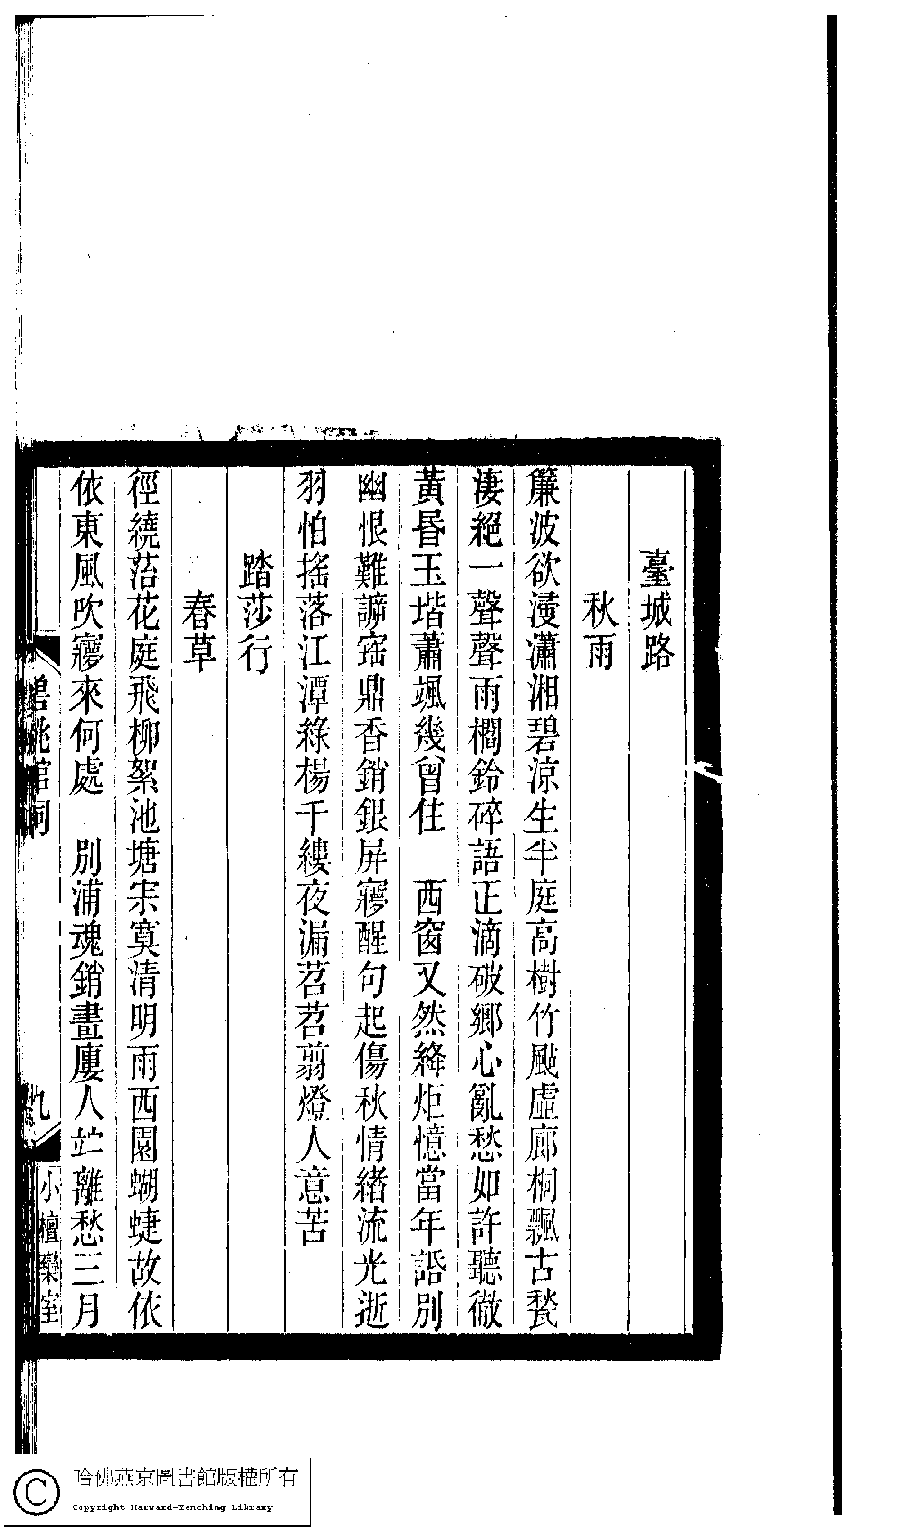 臺城路
秋雨
簾波欲浸瀟湘碧涼生半庭高樹竹颭虛廊桐飄古甃
淒絕一聲聲雨櫚鈴碎語正滴破鄉心亂愁如許聽徹
黃昏玉堦蕭颯幾曾住　西窗又然絳炬憶當年話別
幽恨難諦寍鼎香銷銀屏寱醒句起傷秋情緒流光逝
羽怕搖落江潭綠楊千縷夜漏苕苕翦燈人意苦
踏莎行
春草
徑繞苔花庭飛柳絮池塘宋寞清明雨西園蝴蜨故依
依東風吹寱來何處　別浦魂銷畫廔人竚離愁三月
碧桃館詞
九
小檀欒室
哈佛燕京圖書館版權所有
Copyright Harvard-Yenching Library